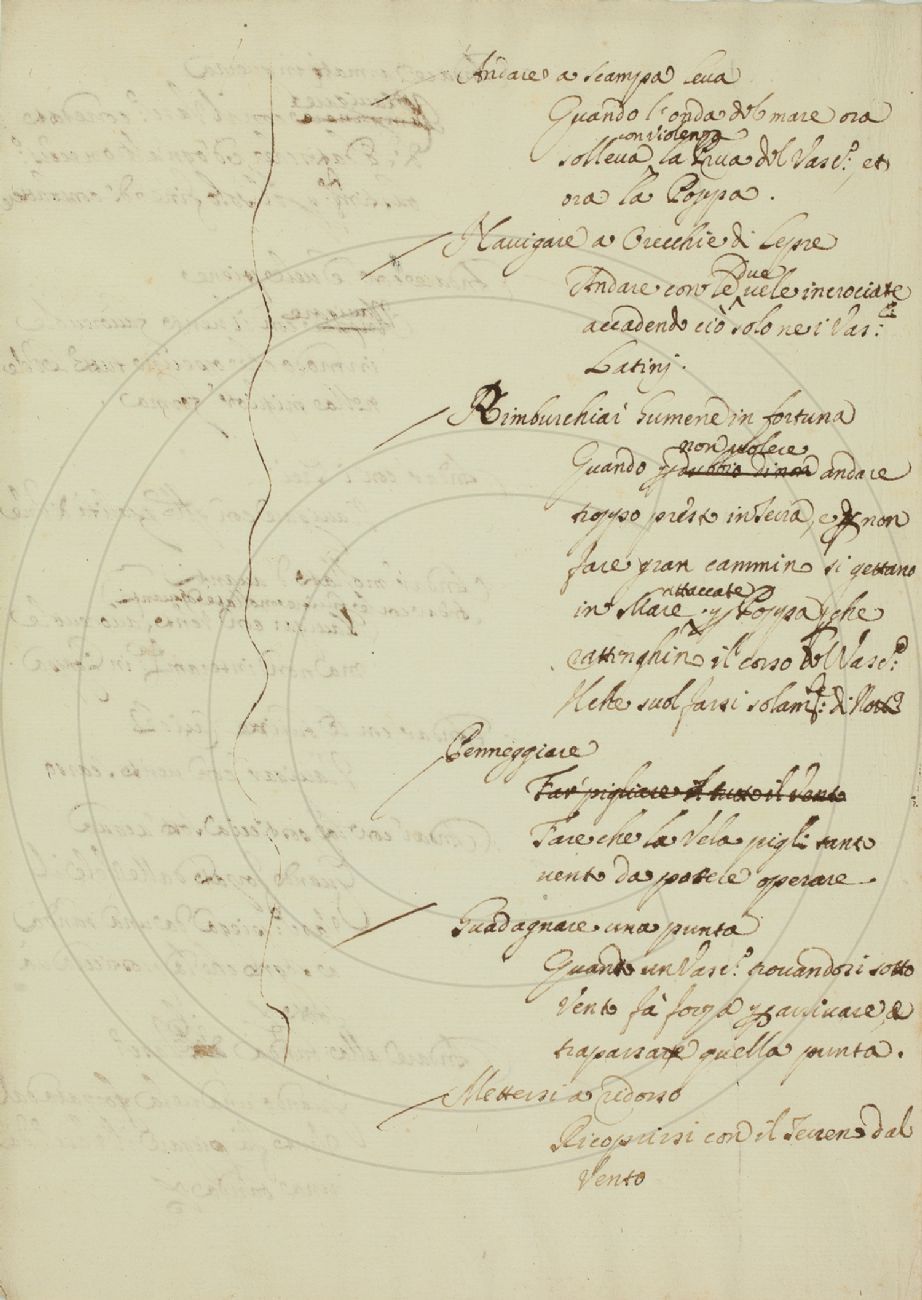 Andare a scampa leva
Quando l'onda del mare ora
con violenza
solleva la Prua del Vasc.º, et
ora la Poppa.
Navigare a Orecchie di Lepre
Due
Andare con le vele incrociate
accadendo ciò solo ne i Vas:ˡⁱ
Latinj.
Rimburchiar Gumene in fortuna
non volere
Quando p dubbio di non andare
troppo presto in Terra, e p non
fare gran cammino si gettano
attaccate
in Mare p Poppa p che
rattenghino il corso del Vasc.º
Il che suol farsi solam.ᵗᵉ di Notte
Penneggiare
Far pigliare il tutto il Vento
Fare che la Vela pigli tanto
vento da potere operare.
Guadagnare una punta
Quando un Vasc.º trovandosi sotto
Vento fà forza p arrivare, e
trapassare quella punta.
Mettersi a ridosso
Ricoprirsi con il Terreno dal
Vento